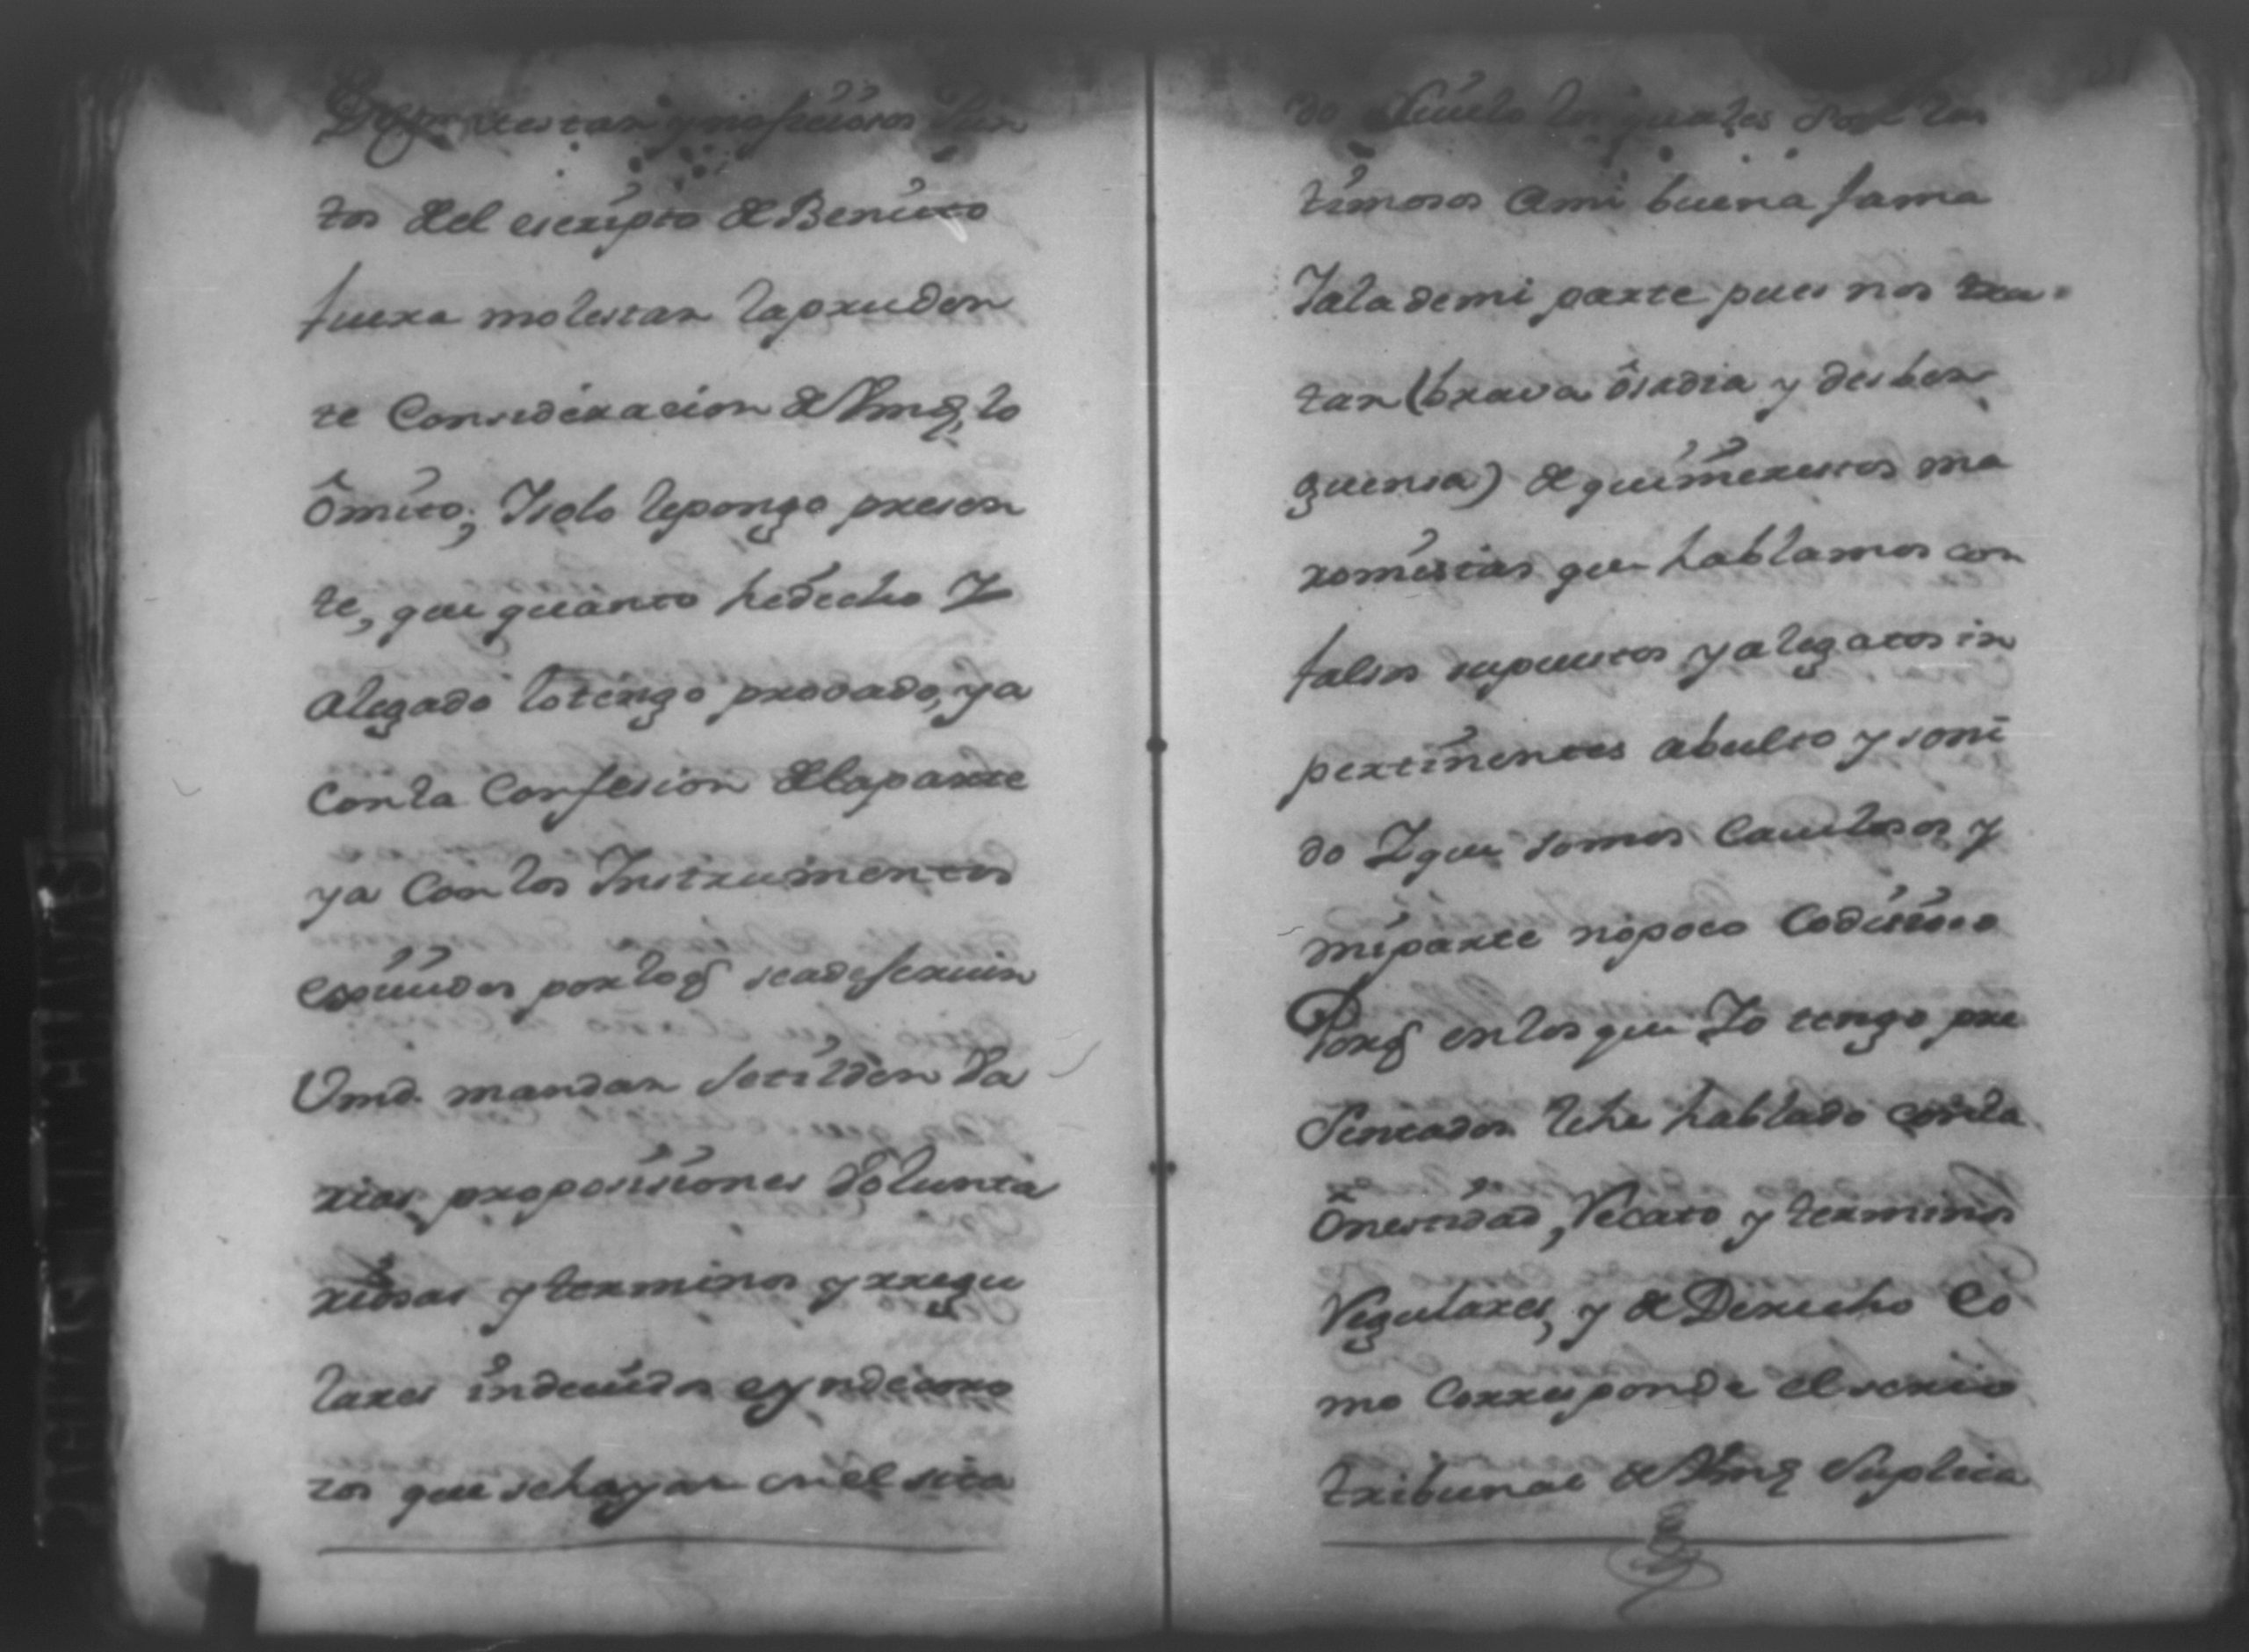 tos del escripto de Benito
fuera molestar laprudon
te Consideracion de Vmd, lo
ômito; Isolo lepongo presen
te, que quanto hedecho Y
alegado lotengo provado, ya
Conla Confesion delaparte
ya Conlos Instrumentos
expuudos porloq seadeseruir
Vmd. mandar setilden Va
rias proposissiones Volunta
riosas y terminos yrregu
lares indeuidos eyndecoro
sos que sehayan en el sita
do
timosos ami buena fama
Iala demi parte pues nos tra
tan (brava ôsadia y desber
guensa) de quimeristas ma
romistas que hablamos con
falsos supuestos yalegatos in
pertinentes abulto y soni
do Yque somos Cauilosos y
miparte nopoco Codisioso
Porq enlos que Yo tengo pre
sentados lehe hablado conla
Onestidad, Recato y terminos
Regulares, y de Derecho Co
mo Corresponde el serio
tribunal de Vmd Suplica